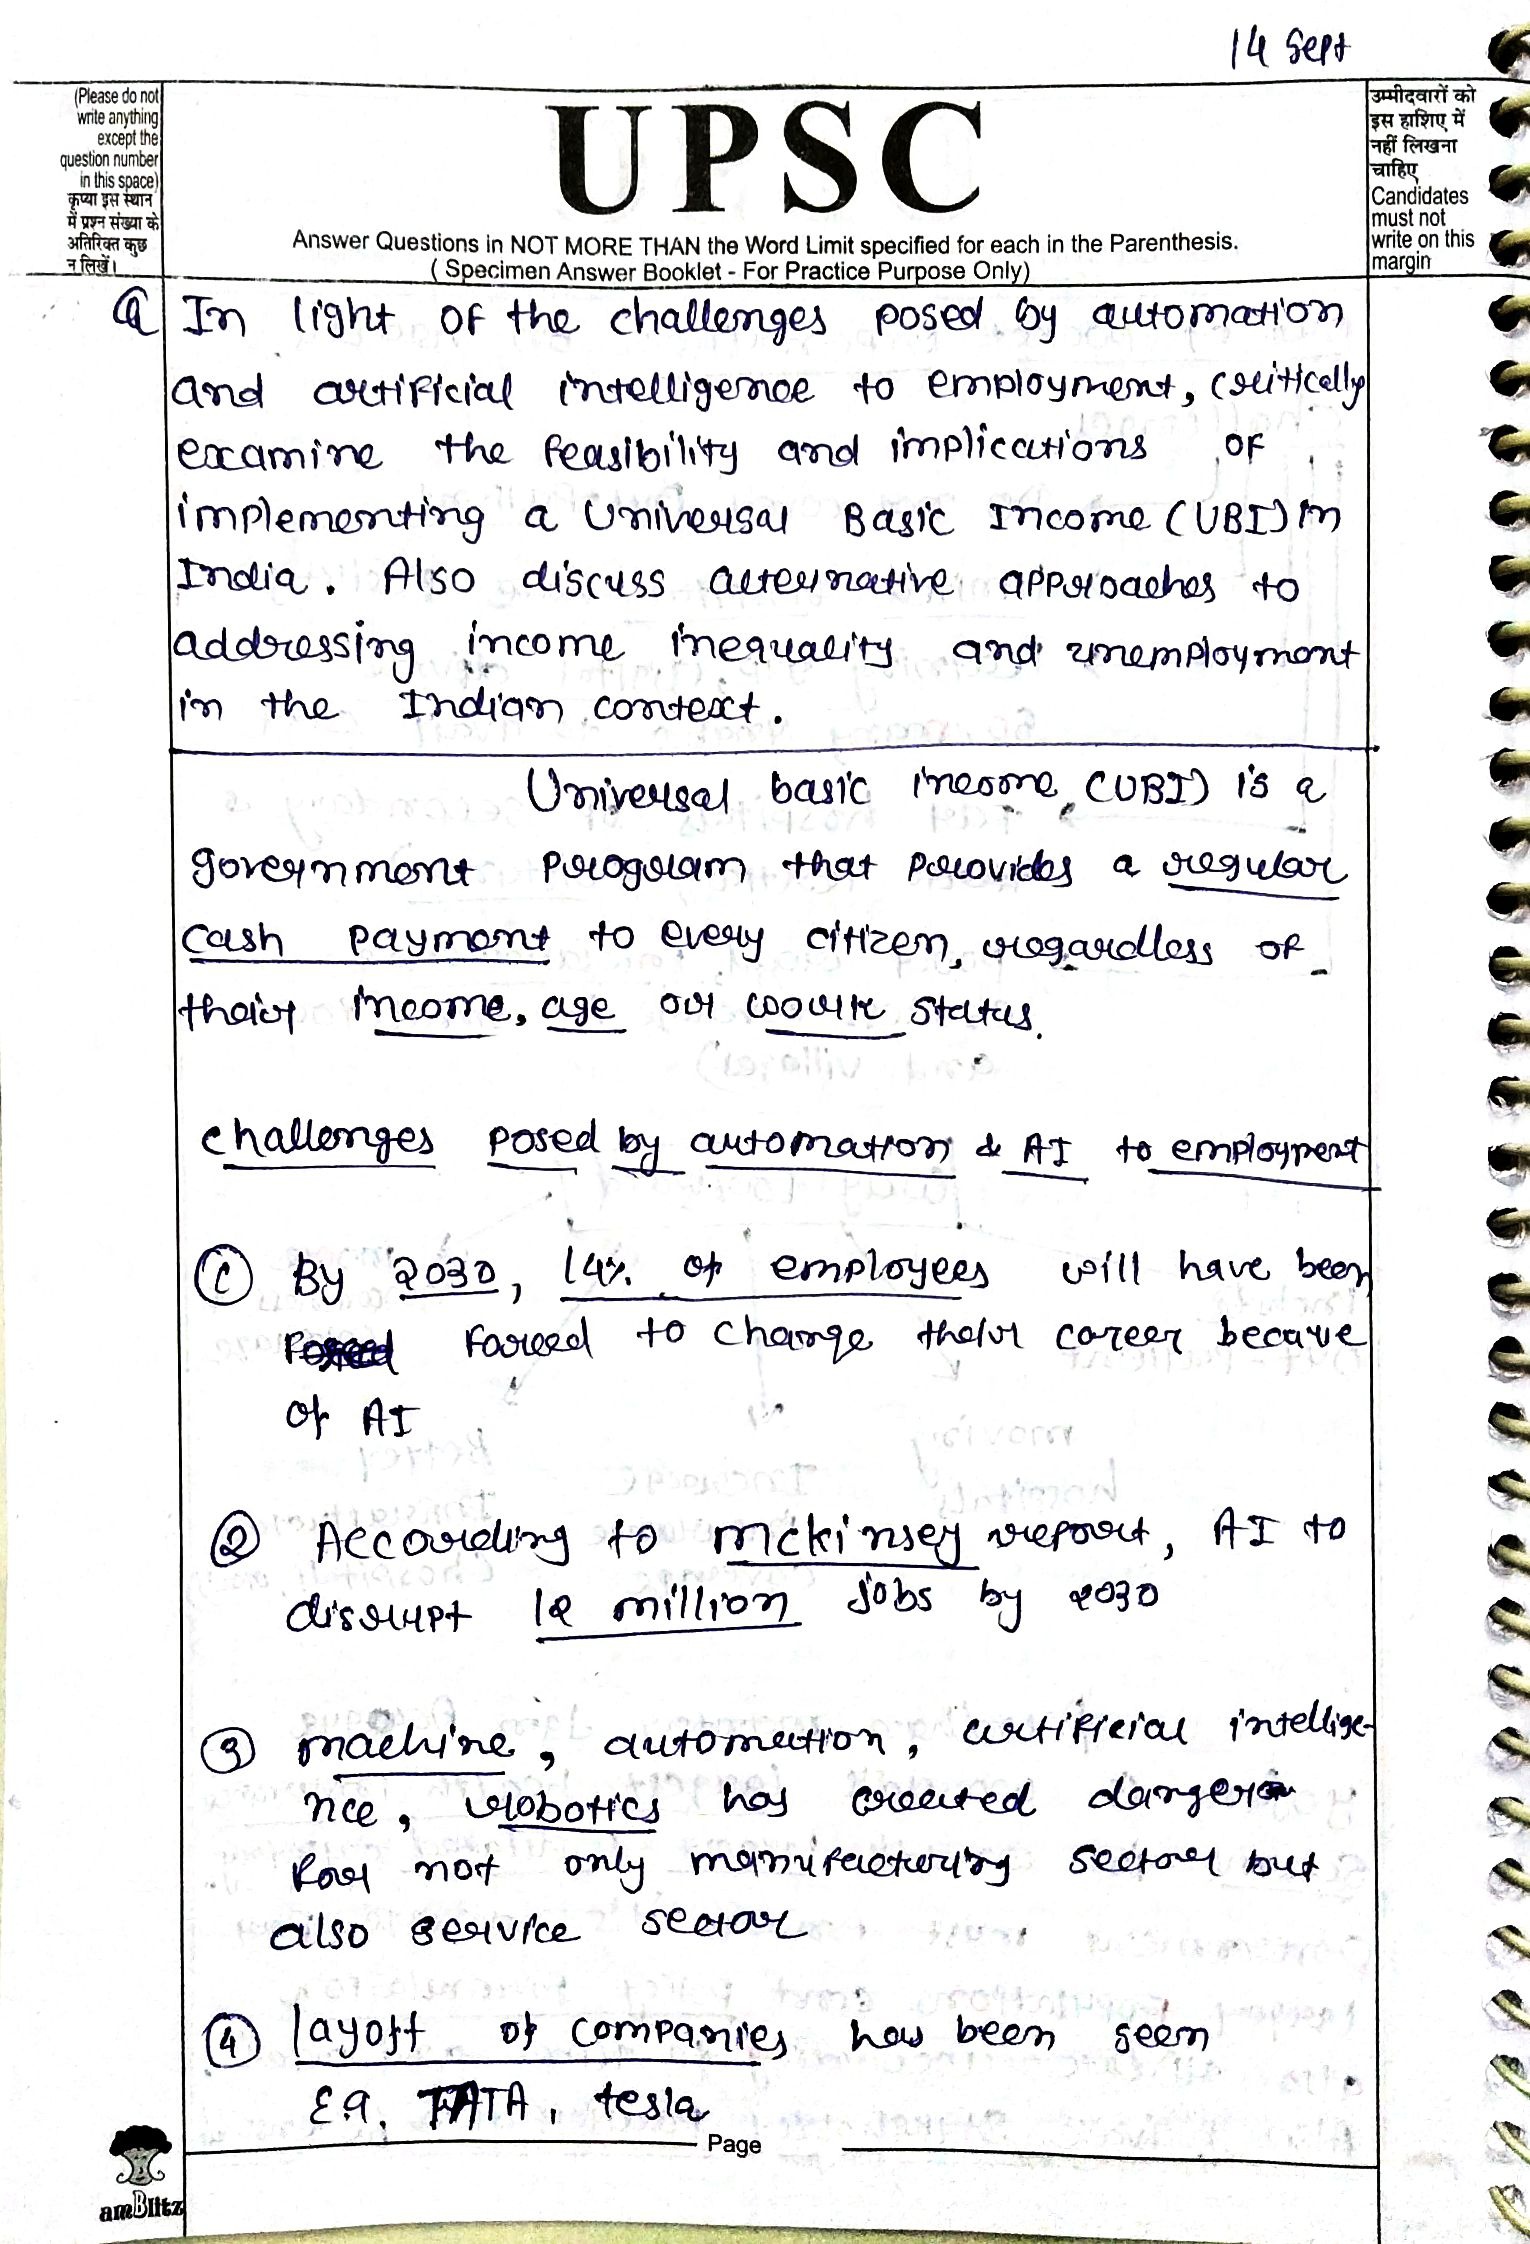 14 Sept
(Please do not
write anything
except the
question number
in this space)
कृप्या इस स्थान
में प्रश्न संख्या के
अतिरिक्त कुछ
न लिखें।
UPSC
Answer Questions in NOT MORE THAN the Word Limit specified for each in the Parenthesis.
( Specimen Answer Booklet - For Practice Purpose Only)
उम्मीदवारों को
इस हाशिए में
नहीं लिखना
चाहिए
Candidates
must not
write on this
margin
Q In light of the challenges posed by automation
and artificial intelligence to employment, critically
examine the feasibility and implications of
implementing a Universal Basic Income (UBI) in
India. Also discuss alternative approaches to
addressing income inequality and unemployment
in the Indian context.
Universal basic income (UBI) is a
government program that provides a regular
cash payment to every citizen, regardless of
their income, age or work status.
challenges posed by automation & AI to employment
① By 2030, 14% of employees will have been
forced to change their career because
of AI
② According to mckinsey report, AI to
disrupt 12 million jobs by 2030
③ machine, automation, artificial intellige-
nce, robotics has created danger
for not only manufacturing sector but
also service sector
④ layoff of companies has been seen
E.g. TATA, tesla
Page
amBlitz